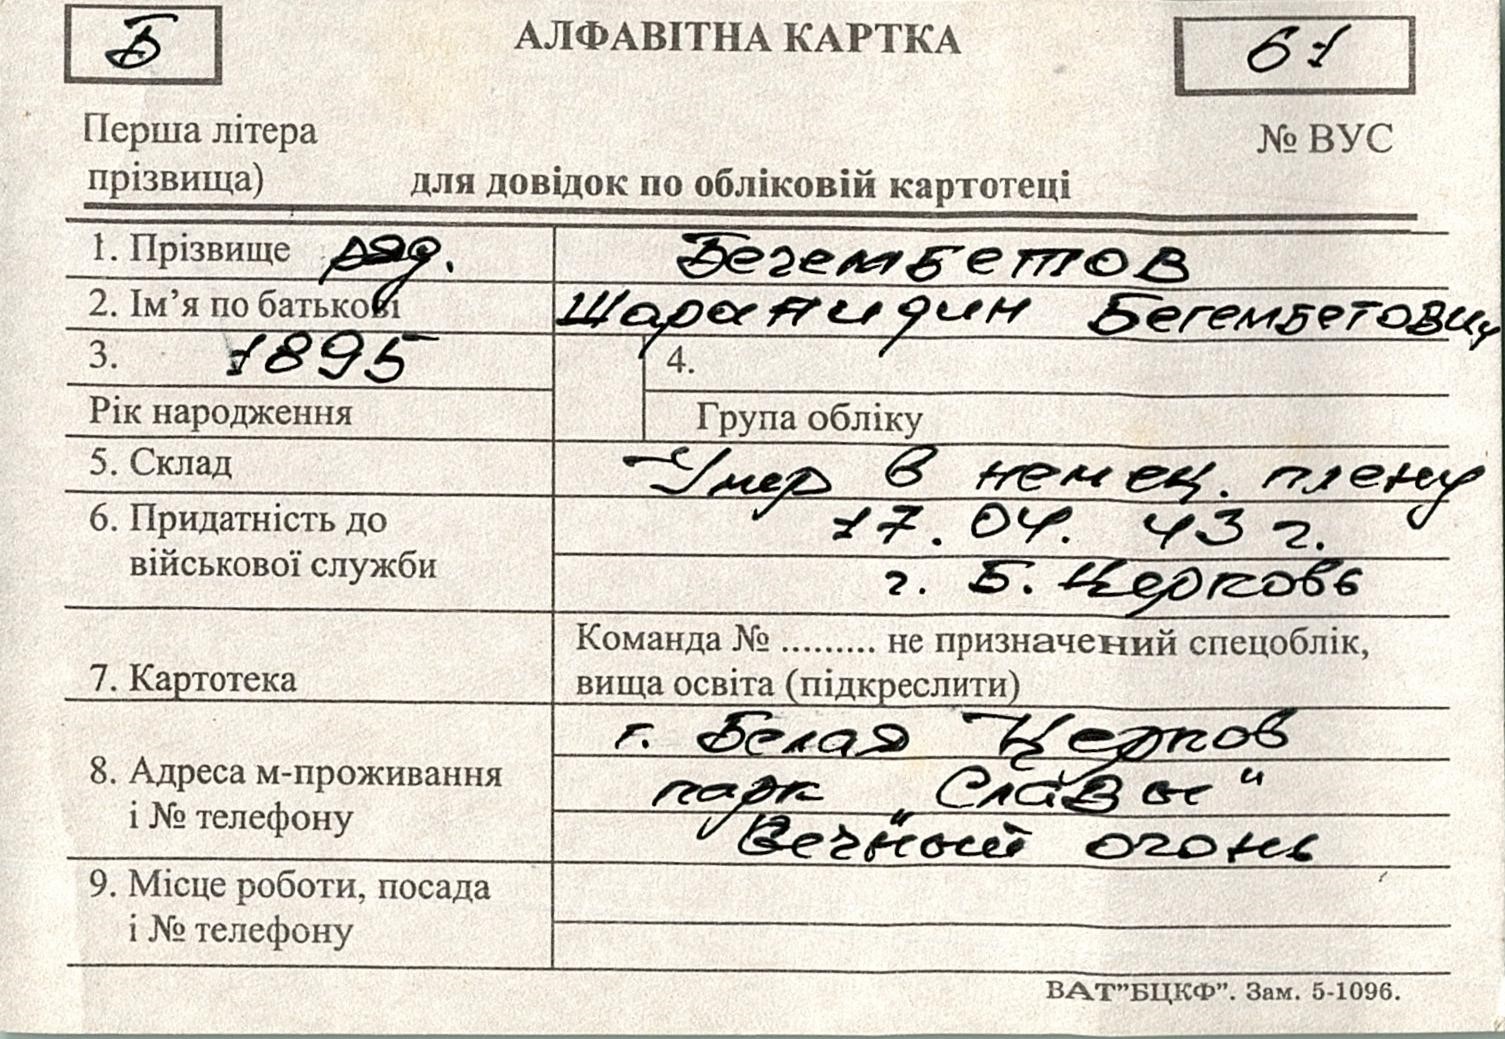 Б
АЛФАВІТНА КАРТКА
61
Перша літера
прізвища)
№ ВУС
для довідок по обліковій картотеці
1. Прізвище ряд. Бегембетов
2. Ім’я по батькові Шарапидин Бегембетович
3. 1895
4.
Рік народження
Група обліку
5. Склад Умер в немец. плену
6. Придатність до 17.04.43 г.
військової служби г. Б. Церковь
Команда № ......... не призначений спецоблік,
7. Картотека вища освіта (підкреслити)
г. Белая Церков
8. Адреса м-проживання парк „Славы“
і № телефону Вечный огонь
9. Місце роботи, посада
і № телефону
ВАТ”БЦКФ”. Зам. 5-1096.